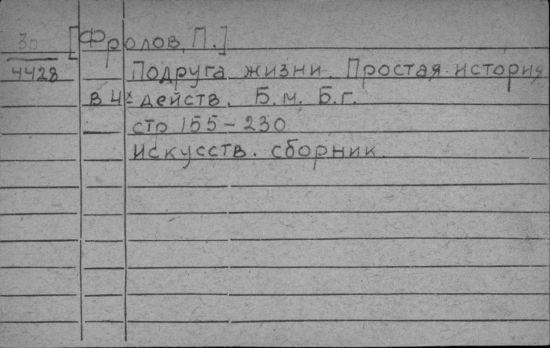 30 [Фролов, П.]
4428 Подруга жизни. Простая история
в 4х действ. Б. м. Б. г.
стр 155 – 230
Искусств. сборник